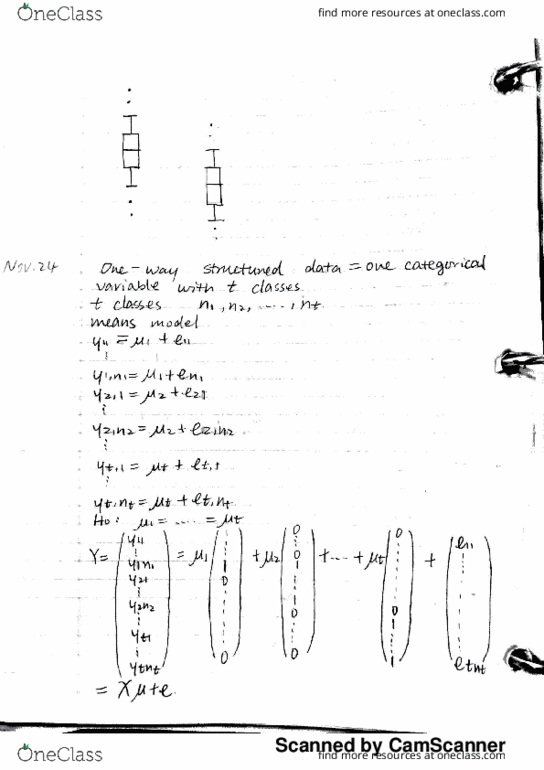 OneClass
find more resources at oneclass.com
Nov.24 One-way structured data = one categorical
variable with t classes.
t classes n1, n2, ....., nt
means model
y11 = μ1 + e11
y1,n1 = μ1 + en1
y2,1 = μ2 + e21
y2,n2 = μ2 + e2,n2
yt,1 = μt + et,1
yt,nt = μt + et,nt
Ho: μ1 = ..... = μt
Y = (y11 ⋮ y1n1 y21 ⋮ y2n2 ⋮ yt1 ⋮ ytnt) = μ1 (1 ⋮ 1 0 ⋮ 0) + μ2 (0 ⋮ 0 1 ⋮ 1 0 ⋮ 0) + ... + μt (0 ⋮ 0 1 ⋮ 1) + (e11 ⋮ etnt)
= Xμ + e.
Scanned by CamScanner
OneClass
find more resources at oneclass.com